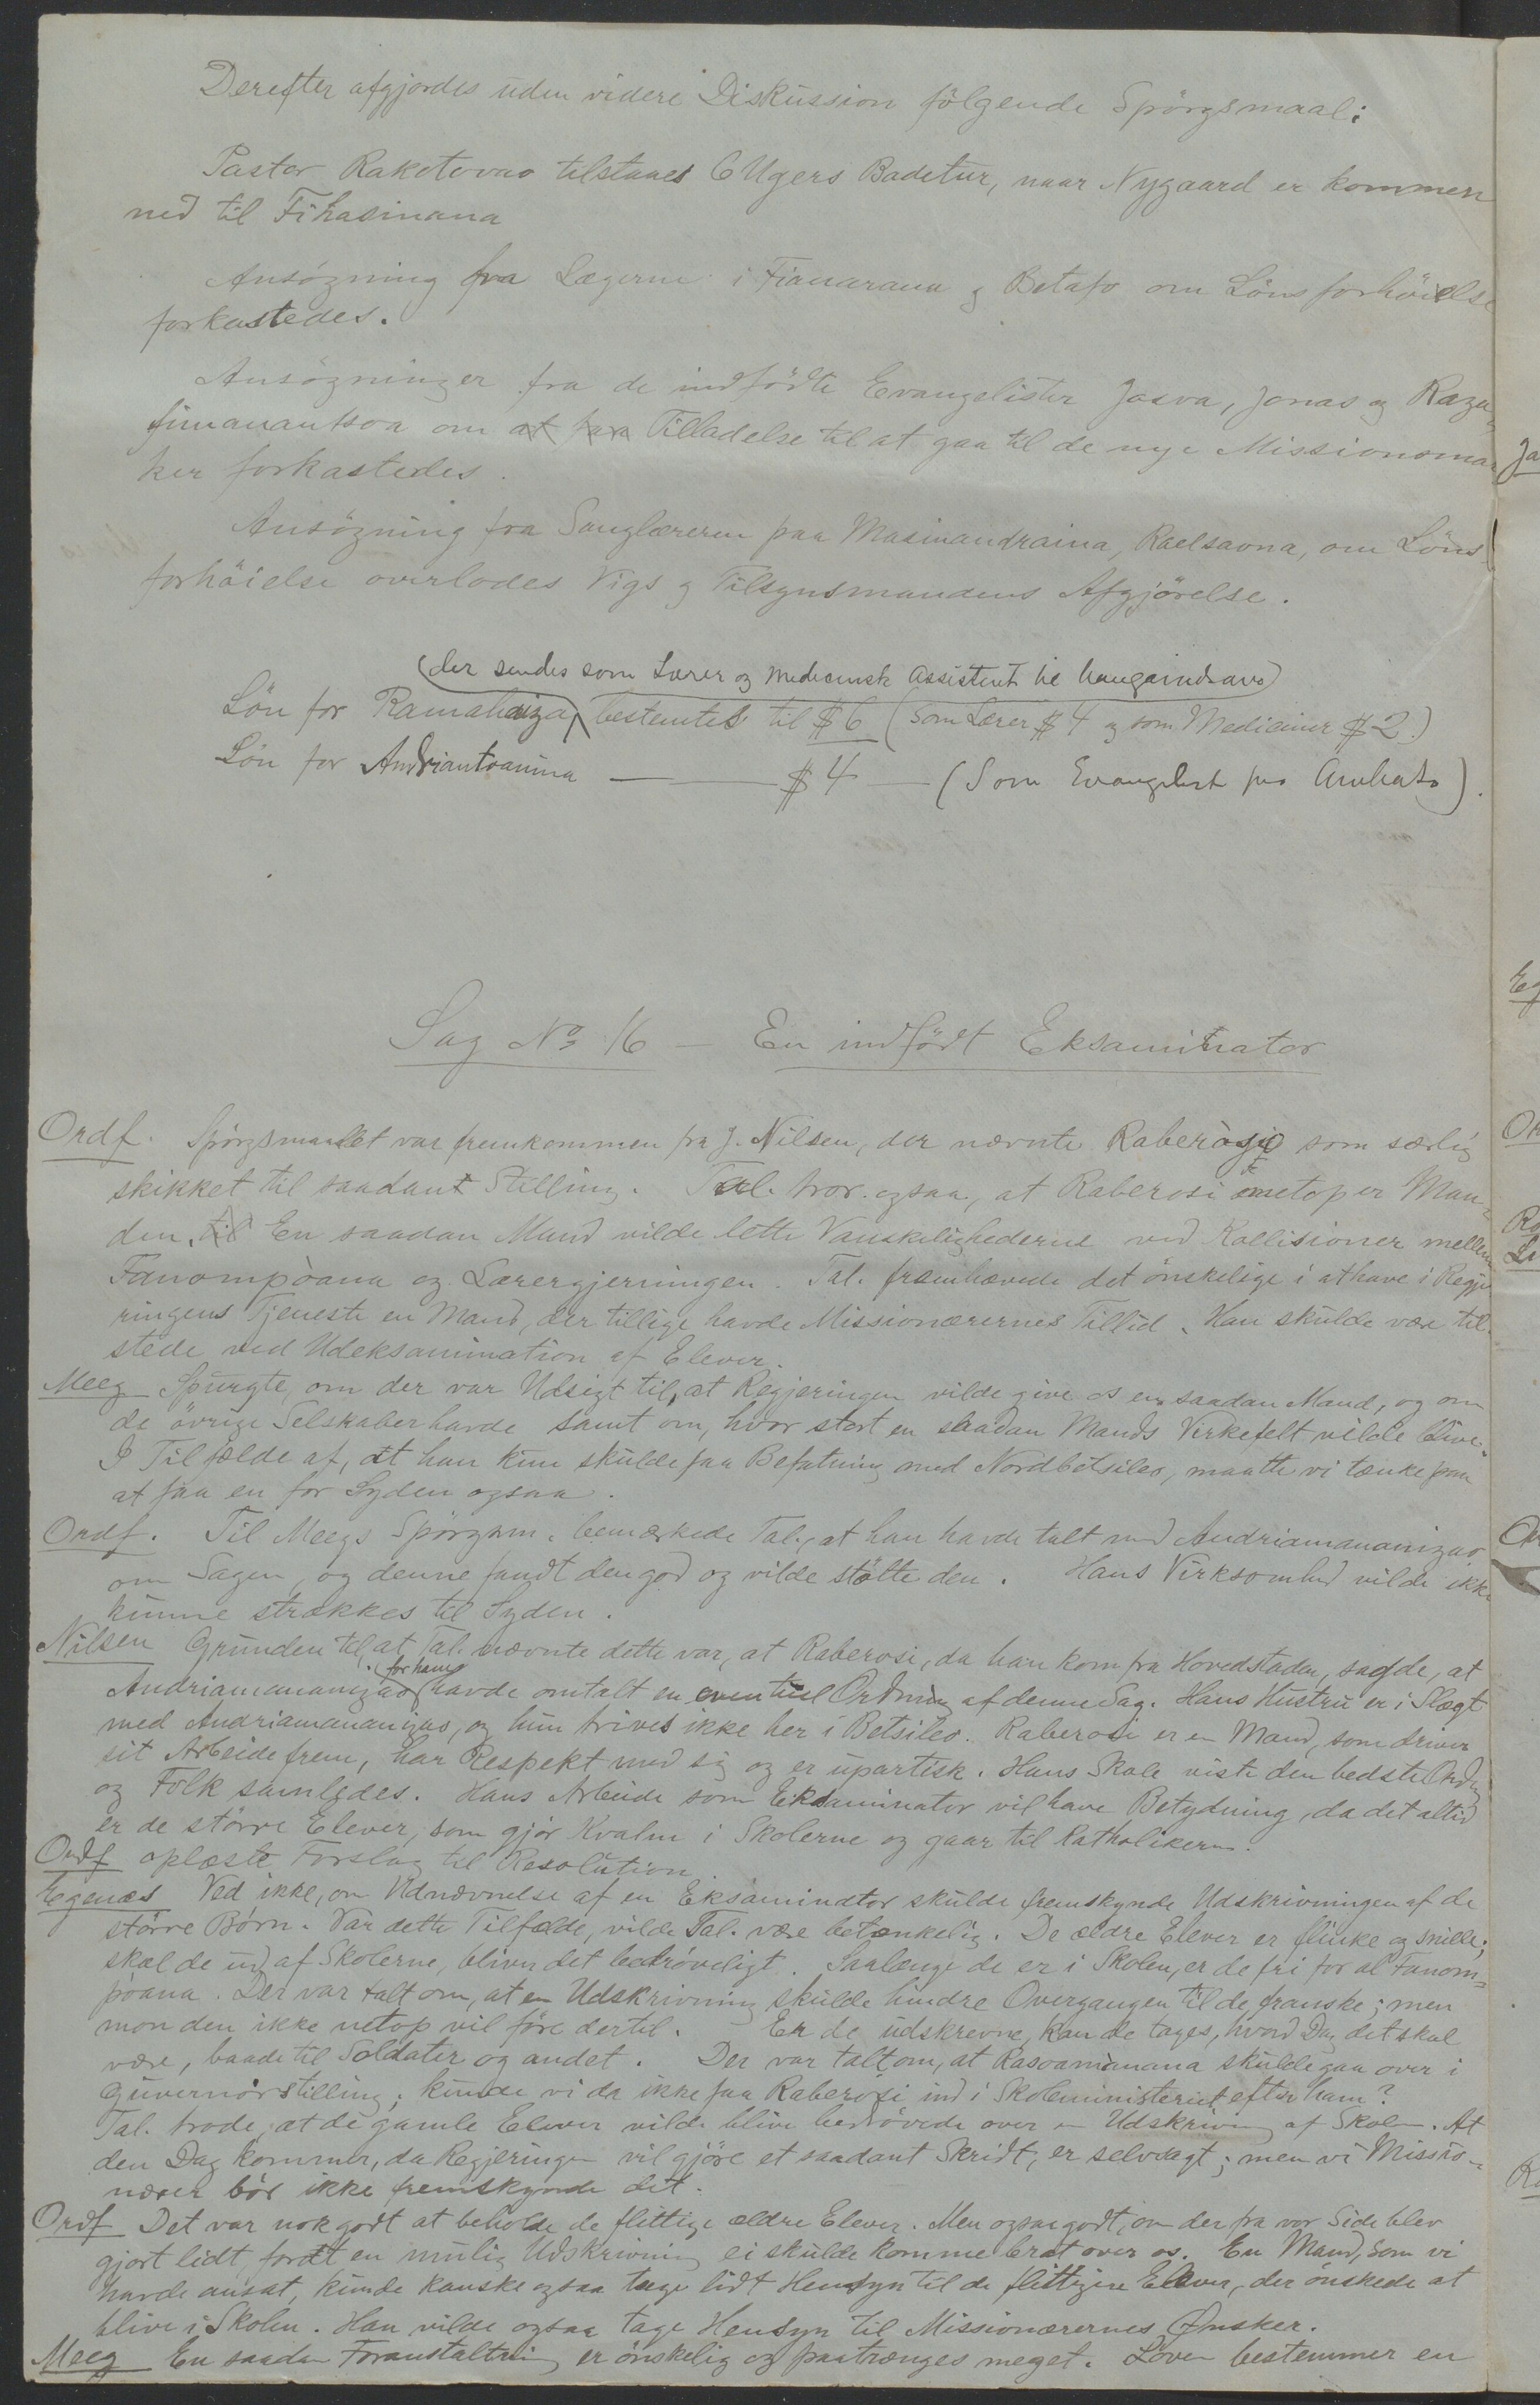 Derefter afgjordes uden videre Diskussion følgende Spörgsmaal:
Pastor Rakotovao tilstaaes 6 Ugers Badetur, naar Nygaard er kommen
ned til Fihasinana
Ansögning fra Lægerne i Fianarana & Betafo om Lönsforhöielse
forkastedes.
Ansögninger fra de indfödte Evangelister Josva, Jonas og Raza-
fimanantsoa om at faa Tilladelse til at gaa til de nye Missionsmar
ker forkastedes.
Ansögning fra Sanglæreren paa Masinandraina, Raelsaona, om Löns-
forhöielse overlodes Vigs & Tilsynsmandens Afgjörelse.
(der sendes som Lærer og medicinsk Assistent til
Lön for Ramahaiza, bestemtes til $6 (som Lærer $4 og som Mediciner $2.)
Lön for Andriantoanina — $4 — (Som Evangelist paa Ambato).
Sag No 16 — En indfödt Eksaminator
Ordf. Spörgsmaalet var fremkommen fra J. Nilsen, der nævnte Raberosi som særlig
skikket til saadant Stilling. Tal. tror ogsaa, at Raberosi netop er Man-
den. til En saadan Mand vilde lette Vanskelighederne ved Kollisioner mellem
Fanompòana og Lærergjerningen. Tal. fremhævede det önskelige i at have i Regje
ringens Tjeneste en Mand, der tillige havde Missionærernes Tillid. Han skulde være til-
stede ved Udeksamination af Elever.
Meeg Spurgte, om der var Udsigt til, at Regjeringen vilde give os en saadan Mand, og om
de övrige Selskaber havde samt om, hvor stort en saadan Mands Virkefelt vilde blive.
I Tilfælde af, at han kun skulde faa Befatning med Nordbetsileo, maatte vi tænke paa
at faa en for Syden ogsaa.
Ordf. Til Meegs Spörgsm. bemærkede Tal., at han havde talt med Andriamananizao
om Sagen, og denne fandt den god og vilde stötte den. Hans Virksomhed vilde ikke
kunne strækkes til Syden.
Nilsen Grunden til, at Tal. nævnte dette var, at Raberosi, da han kom fra Hovedstaden, sagde, at
Andriamananizao for ham havde omtalt en eventuel Ordning af denne Sag. Hans Hustru er i Slægt
med Andriamananizao, og hun trives ikke her i Betsileo. Raberosi er en Mand, som driver
sit Arbeide frem, har Respekt med sig og er upartisk. Hans Skole viste den bedste Orden
og Folk samledes. Hans Arbeide som Eksaminator vil have Betydning, da det altid
er de större Elever, som gjör Kvalm i Skolerne og gaar til Katholikerne.
Ordf oplæste Forslag til Resolution.
Egenæs Ved ikke, om Udnævnelse af en Eksaminator skulde fremskynde Udskrivningen af de
större Børn. Var dette Tilfælde, vilde Tal. være betænkelig. De ældre Elever er flinke og snille;
skal de ud af Skolerne, bliver det bedröveligt. Saalænge de er i Skolen, er de fri for al Fanom-
pòana. Der var talt om, at en Udskrivning skulde hindre Overgangen til de franske; men
mon den ikke netop vil före dertil. Er de udskrevne, kan de tages, hvad Dag det skal
være, baade til Soldater og andet. Der var talt om, at Rasoamianana skulde gaa over i
Guvernörstilling; kunde vi da ikke faa Raberosi ind i Skoleministeriet efter ham?
Tal. trode, at de gamle Elever vilde blive bedrövede over en Udskrivning af Skolen. At
den Dag kommer, da Regjeringen vil gjöre et saadant Skridt, er selvsagt; men vi Missio-
nærer bör ikke fremskynde det.
Ordf Det var nok godt at beholde de flittige ældre Elever. Men ogsaa godt, om der fra vor Side blev
gjort lidt, fordt en mulig Udskrivning ei skulde komme brat over os. En Mand, som vi
havde ansat, kunde kanske ogsaa tage lidt Hensyn til de flittigere Elever, der ønskede at
blive i Skolen. Han vilde ogsaa tage Hensyn til Missionærernes Ønsker.
Meeg En saadan Foranstaltning er önskelig og paatrænges meget. Loven bestemmer en